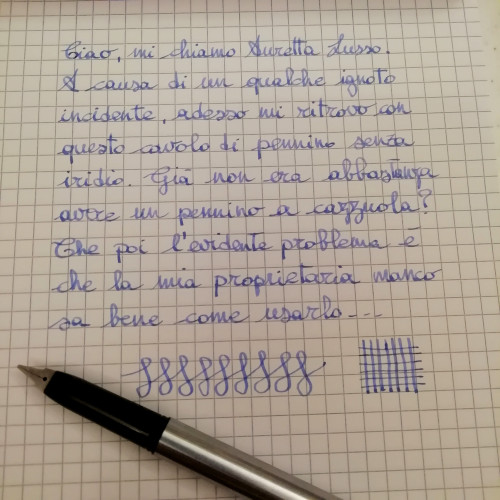 Ciao, mi chiamo Auretta Lusso.
A causa di un qualche ignoto
incidente, adesso mi ritrovo con
questo cavolo di pennino senza
iridio. Già non era abbastanza
avere un pennino a cazzuola?
Che poi l'evidente problema è
che la mia proprietaria manco
sa bene come usarlo...